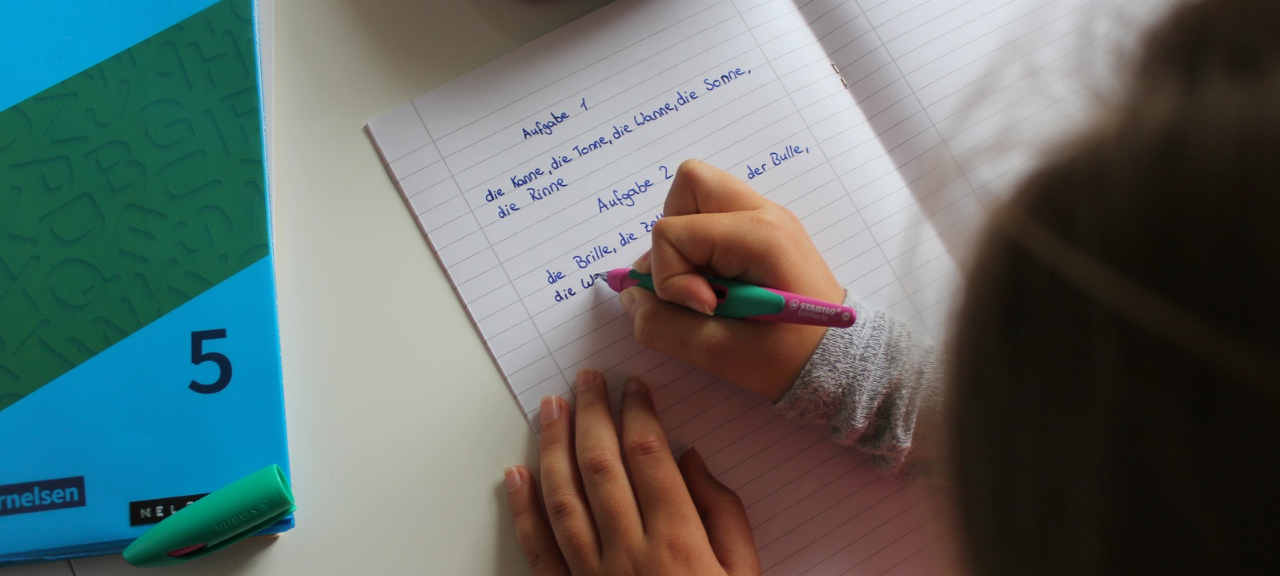 Aufgabe 1
die Kanne, die Tonne, die Wanne, die Sonne,
die Rinne
Aufgabe 2
die Brille, die der Bulle,
die
5
NEL
STABILO